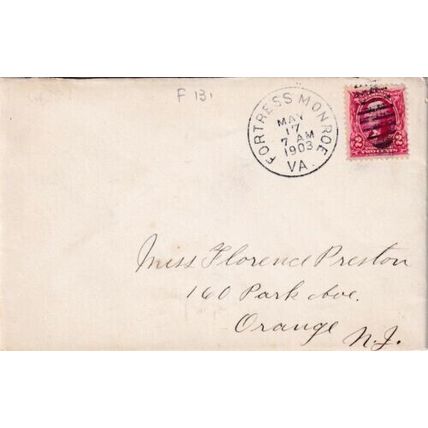 F 131
FORTRESS MONROE
MAY
17
7 AM
1903
VA.
Miss Florence Preston
160 Park Ave.
Orange N.J.